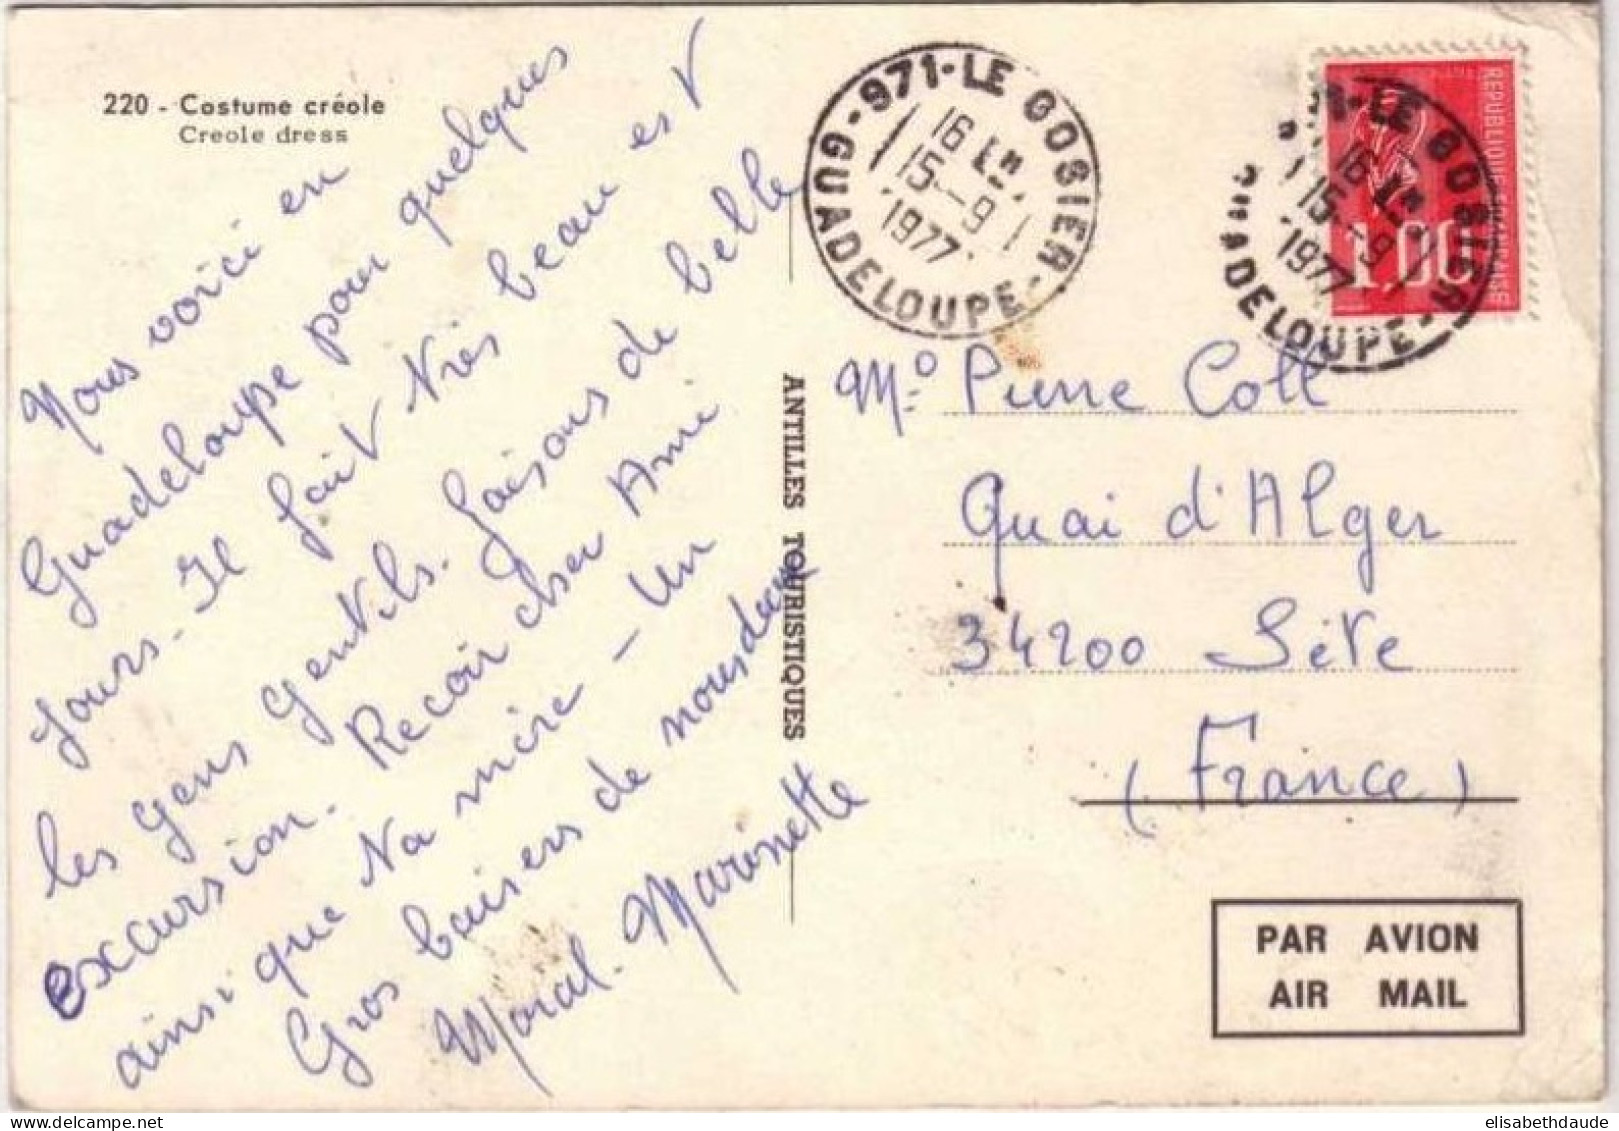 220 - Costume créole
Creole dress
Nous voici en
Guadeloupe pour quelques
jours - Il fait très beau et
les gens gentils. faisons de belle
excursion. Reçoir cher Ami
ainsi que ta mère - un
Gros baisers de nous deux
Marinette
ANTILLES TOURISTIQUES
971-LE GOSIER-
16 H
15-9
1977
GUADELOUPE-
LE GOSIER-
16 H
15-9
1977
ADELOUPE-
REPUBLIQUE FRANCAISE
1.00
Mr Pierre Coll
Quai d'Alger
34200 Sète
(France)
PAR AVION
AIR MAIL
elisabethdaude